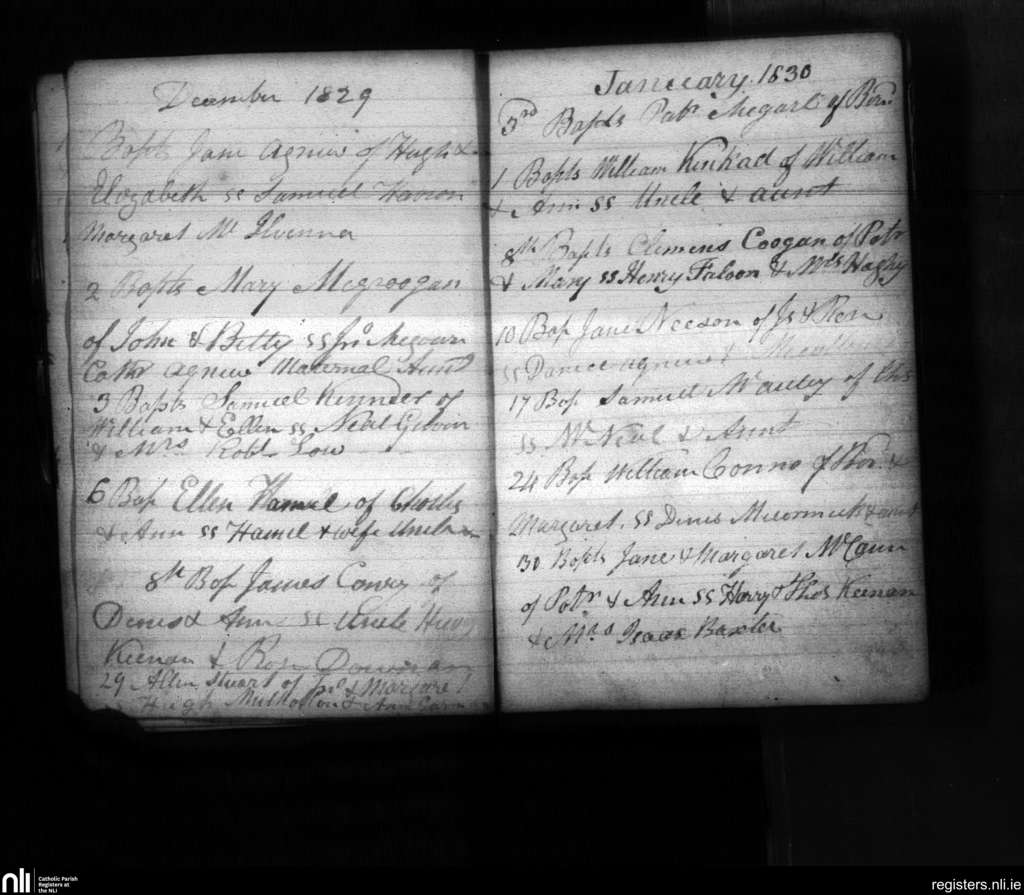 December 1829
Bapts Jane Agnew of Hugh &
Elizabeth ss Samuell
Margaret Mc Ilvenna
2 Bapts Mary Mcgroogan
of John & Betty ss Jno Megown
Cathr Agnew Maternal Aunt
3 Bapts Samuel Kinneer of
William & Ellen ss Neal
& Mrs Robt Low
6 Bap Ellen Hamil of Charles
& Ann ss Hamil & wife Uncle
8th Bap James Conry of
Denis & Ann ss Uncle
Keenan & Rose
29 Allen Stuart of & Margaret
Hugh Mulhollon & Ann
Janueary. 1830
3rd Bapts Patr Megart of
1 Bapts William Kinkad of William
& Ann ss Uncle & aunt
8th Bapts Clemens Coogan of Patr
& Mary ss Henry Faloon & Mrs Hughy
10 Bap Jane Neeson of Js & Rose
ss Agnew &
17 Bap Samuell McAuley of Chs
ss McNeal & Aunt
24 Bap William Conno of &
Margaret. ss Denis Mccormick & aunt
30 Bapts Jane & Margaret McCann
of Patr & Ann ss Harry & Thos Keenan
& Mrs Isaac Baxter
nli
Catholic Parish
Registers at
the NLI
registers.nli.ie